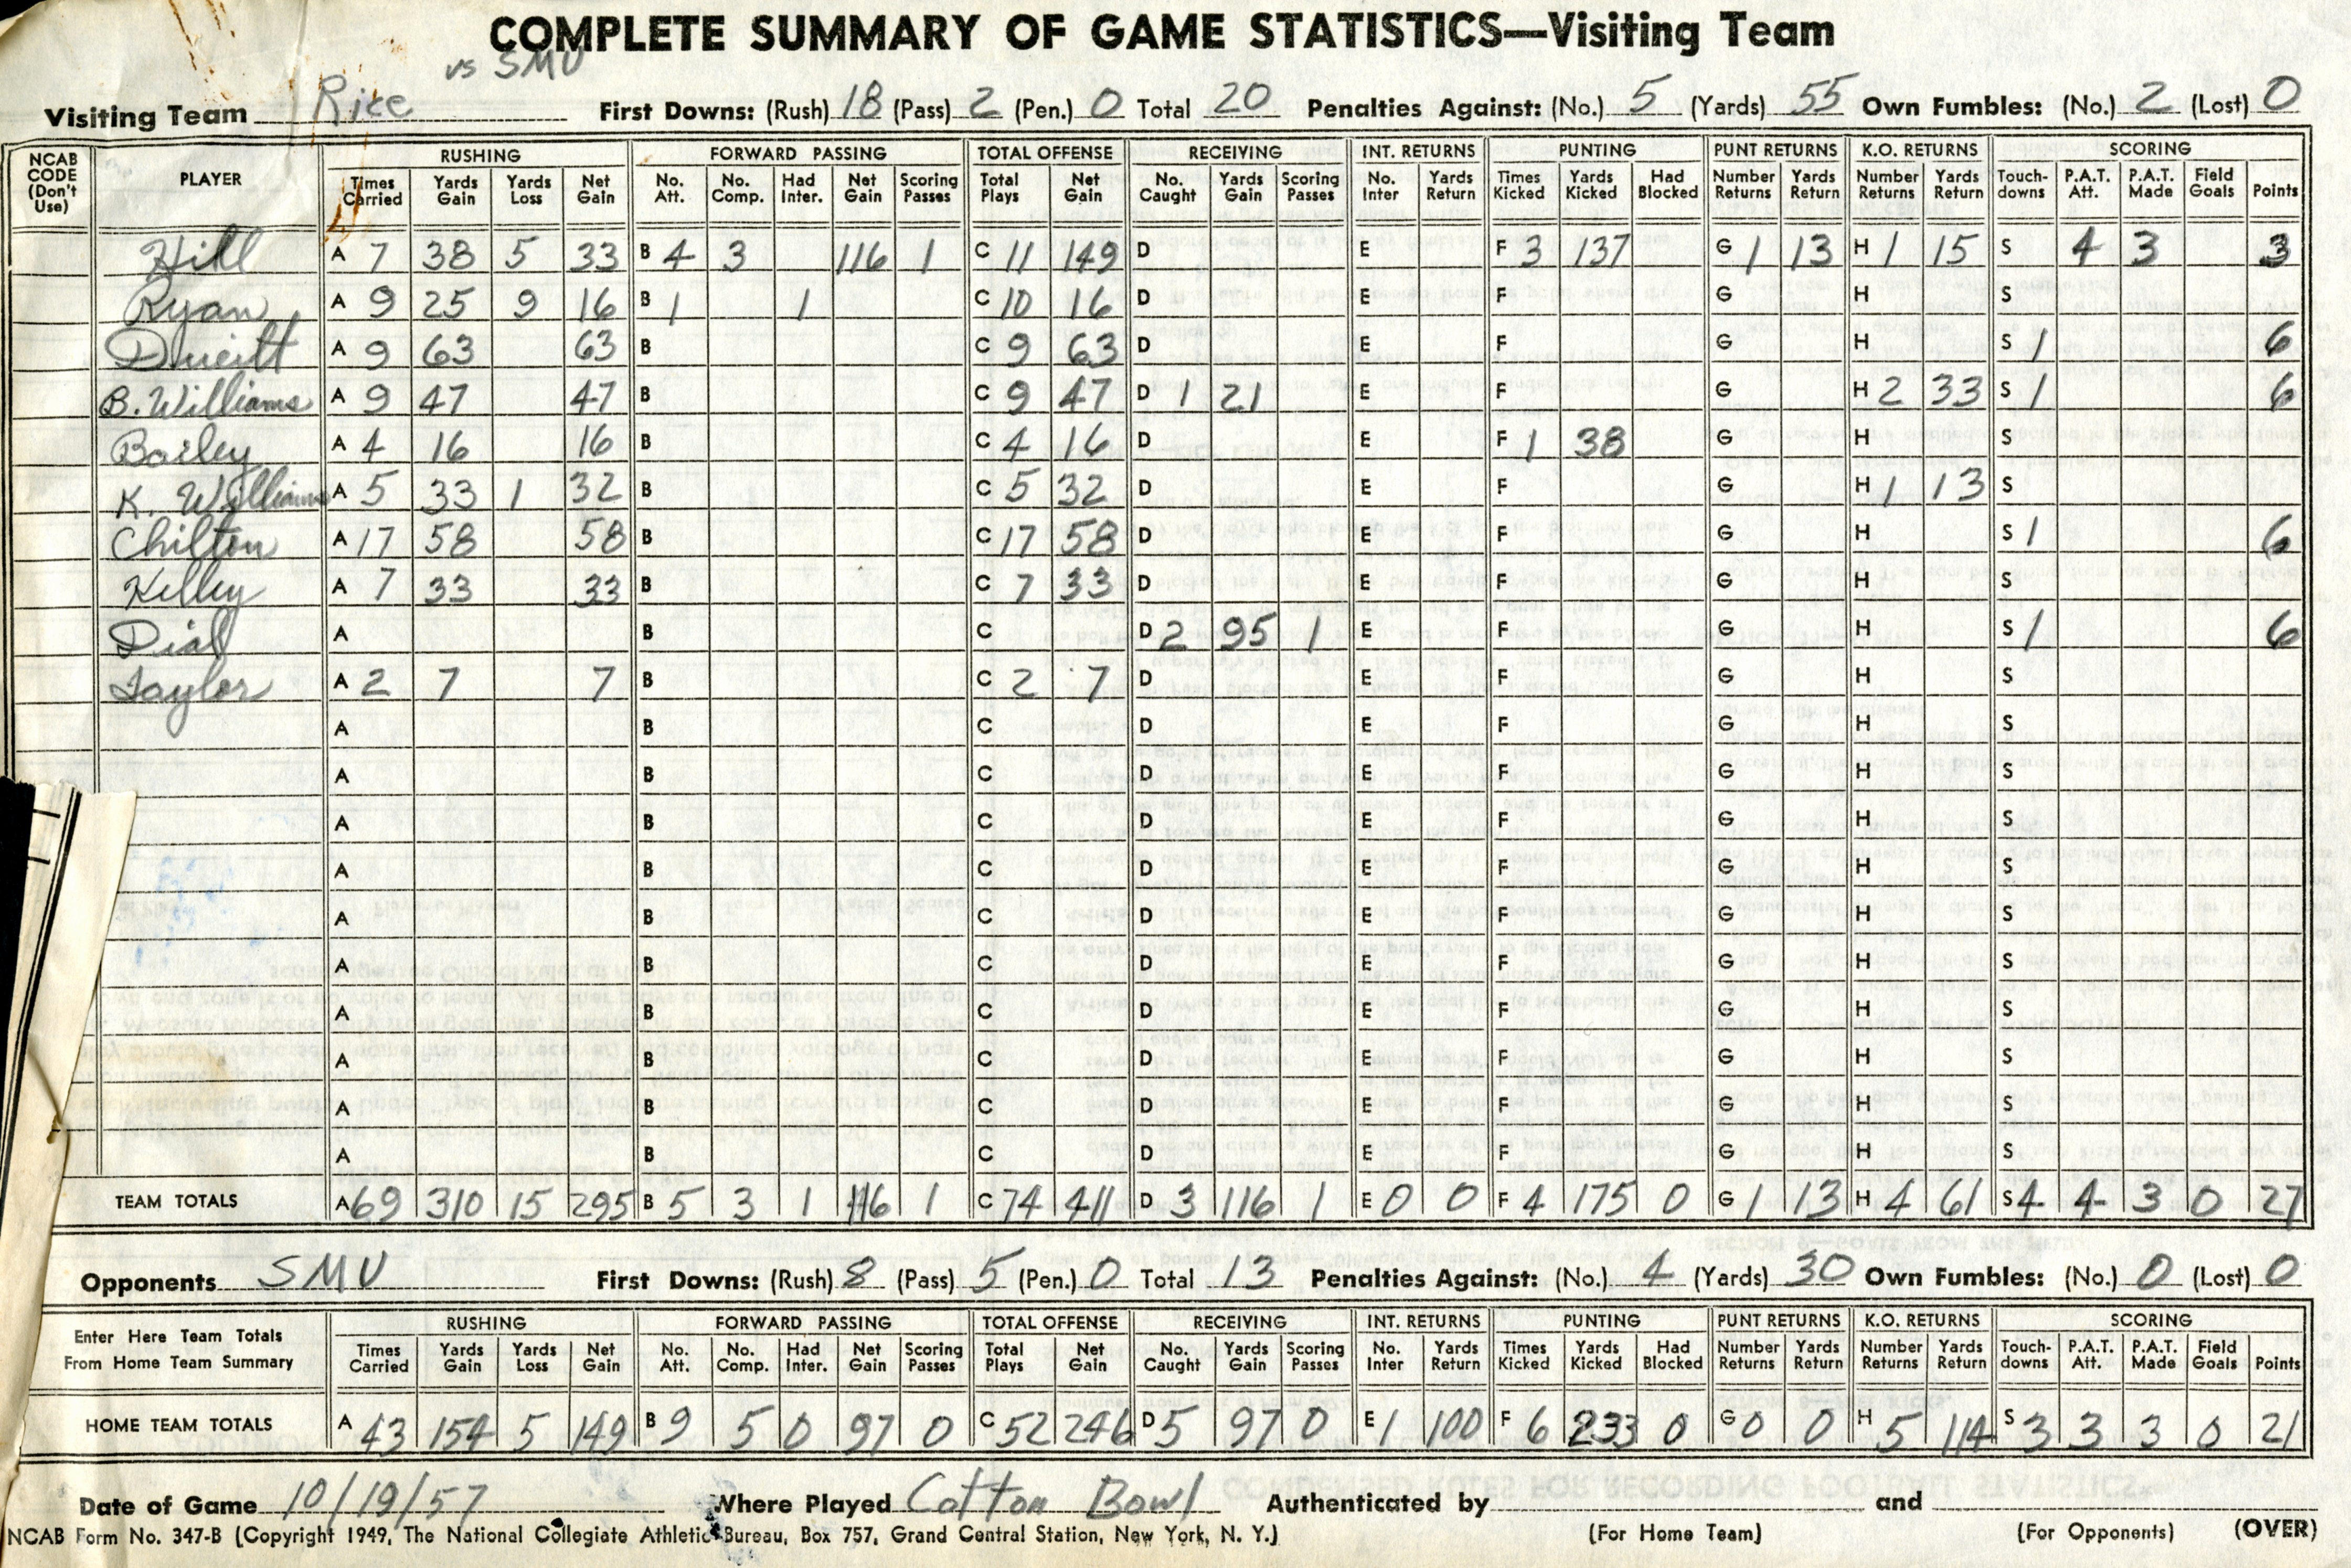 COMPLETE SUMMARY OF GAME STATISTICS—Visiting Team
vs SMU
Visiting Team Rice First Downs: (Rush) 18 (Pass) 2 (Pen.) 0 Total 20 Penalties Against: (No.) 5 (Yards) 55 Own Fumbles: (No.) 2 (Lost) 0
NCAB CODE (Don't Use) PLAYER RUSHING FORWARD PASSING TOTAL OFFENSE RECEIVING INT. RETURNS PUNTING PUNT RETURNS K.O. RETURNS SCORING
Times Carried Yards Gain Yards Loss Net Gain No. Att. No. Comp. Had Inter. Net Gain Scoring Passes Total Plays Net Gain No. Caught Yards Gain Scoring Passes No. Inter Yards Return Times Kicked Yards Kicked Had Blocked Number Returns Yards Return Number Returns Yards Return Touch-downs P.A.T. Att. P.A.T. Made Field Goals Points
Hill A 7 38 5 33 B 4 3 116 1 C 11 149 D E F 3 137 G 1 13 H 1 15 S 4 3 3
Ryan A 9 25 9 16 B 1 1 C 10 16 D E F G H S
Dueitt A 9 63 63 B C 9 63 D E F G H S 1 6
B. Williams A 9 47 47 B C 9 47 D 1 21 E F G H 2 33 S 1 6
Bailey A 4 16 16 B C 4 16 D E F 1 38 G H S
K. Williams A 5 33 1 32 B C 5 32 D E F G H 1 13 S
Chilton A 17 58 58 B C 17 58 D E F G H S 1 6
Kelley A 7 33 33 B C 7 33 D E F G H S
Dial A B C D 2 95 1 E F G H S 1 6
Taylor A 2 7 7 B C 2 7 D E F G H S
A B C D E F G H S
A B C D E F G H S
A B C D E F G H S
A B C D E F G H S
A B C D E F G H S
A B C D E F G H S
A B C D E F G H S
A B C D E F G H S
A B C D E F G H S
A B C D E F G H S
TEAM TOTALS A 69 310 15 295 B 5 3 1 116 1 C 74 411 D 3 116 1 E 0 0 F 4 175 0 G 1 13 H 4 61 S 4 4 3 0 27
Opponents SMU First Downs: (Rush) 8 (Pass) 5 (Pen.) 0 Total 13 Penalties Against: (No.) 4 (Yards) 30 Own Fumbles: (No.) 0 (Lost) 0
Enter Here Team Totals From Home Team Summary RUSHING FORWARD PASSING TOTAL OFFENSE RECEIVING INT. RETURNS PUNTING PUNT RETURNS K.O. RETURNS SCORING
Times Carried Yards Gain Yards Loss Net Gain No. Att. No. Comp. Had Inter. Net Gain Scoring Passes Total Plays Net Gain No. Caught Yards Gain Scoring Passes No. Inter Yards Return Times Kicked Yards Kicked Had Blocked Number Returns Yards Return Number Returns Yards Return Touch-downs P.A.T. Att. P.A.T. Made Field Goals Points
HOME TEAM TOTALS A 43 154 5 149 B 9 5 0 97 0 C 52 246 D 5 97 0 E 1 100 F 6 233 0 G 0 0 H 5 114 S 3 3 3 0 21
Date of Game 10/19/57 Where Played Cotton Bowl Authenticated by and
NCAB Form No. 347-B (Copyright 1949, The National Collegiate Athletic Bureau, Box 757, Grand Central Station, New York, N. Y.) (For Home Team) (For Opponents) (OVER)